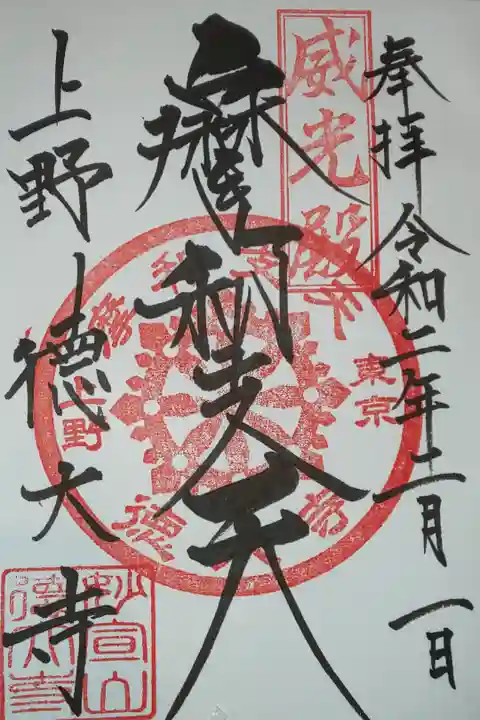 奉拝 令和二年二月一日
威光殿
摩利支天
上野 徳大寺
東京
上野
妙宣山
徳大寺